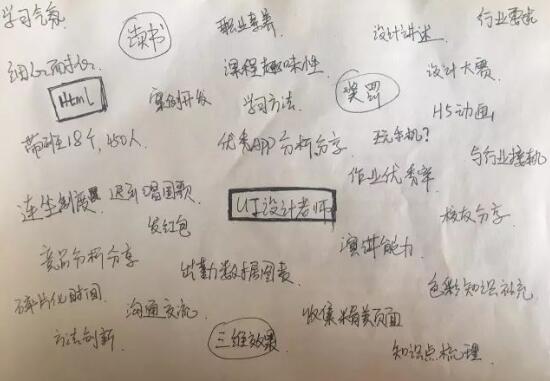 学习气氛
读书
职业素养
设计讲述
行业要求
细心而耐心
课程趣味性
设计大赛
Html
案例开发
学习方法
奖罚
H5动画
带班18个,450人
优秀APP分析分享
玩手机?
与行业接轨
作业优秀率
连坐制度
迟到唱国歌
UI设计老师
校友分享
发红包
演讲能力
竞品分析分享
出勤数据图表
色彩知识补充
碎片化时间
沟通交流
收集精美页面
方法创新
三维效果
知识点梳理